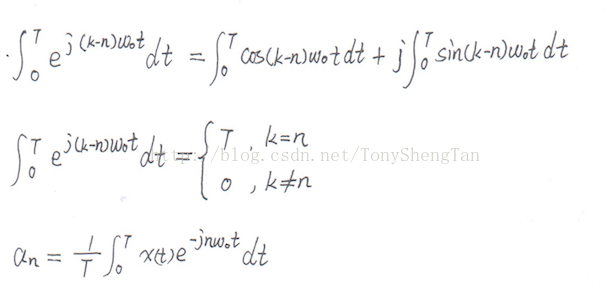 ∫₀ᵀ e^{j(k-n)w₀t} dt = ∫₀ᵀ cos(k-n)w₀t dt + j∫₀ᵀ sin(k-n)w₀t dt
∫₀ᵀ e^{j(k-n)w₀t} dt = { T , k=n
0 , k≠n
http://blog.csdn.net/TonyShengTan
aₙ = 1/T ∫₀ᵀ x(t)e^{-jnw₀t} dt